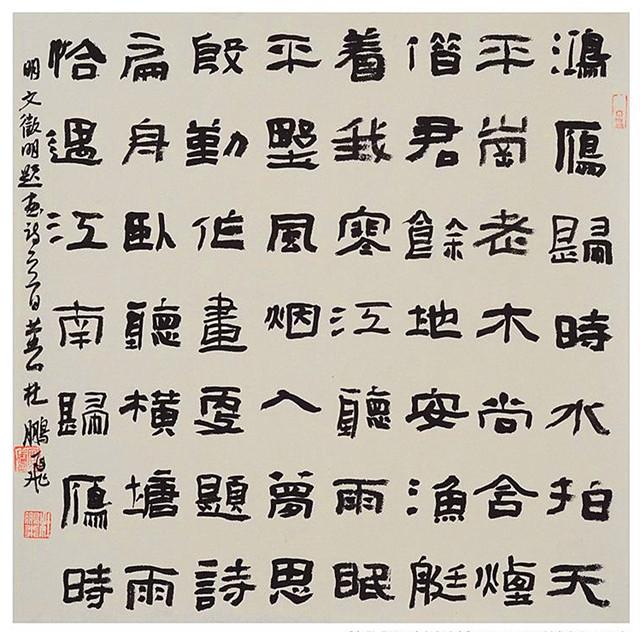 鴻鴈歸時水拍天
平崗老木尚含煙
借君餘地安漁艇
着我寒江聽雨眠
平墅風烟入夢思
殷勤作畫更題詩
扁舟臥聽橫塘雨
恰遇江南歸鴈時
明文徵明題画詩二首 杜鵬飛